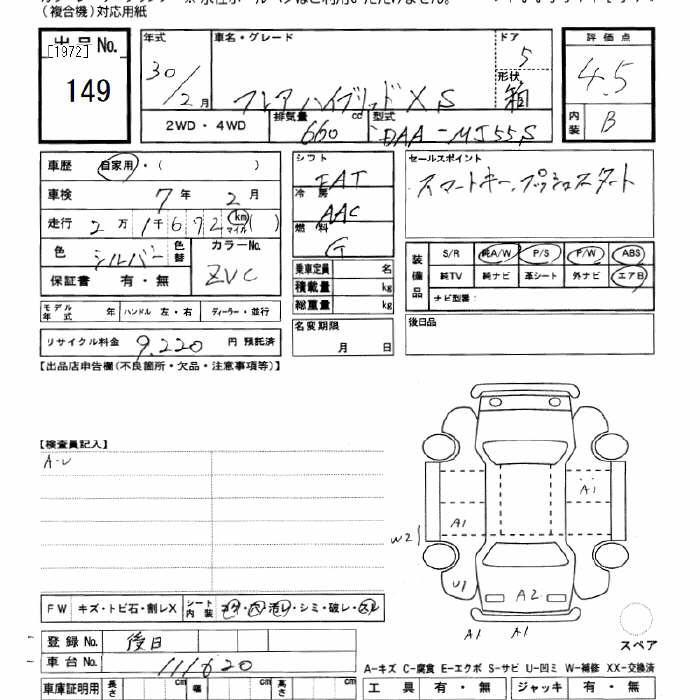 (複合機)対応用紙
出品No.
[1972]
149
年式 30/2月
車名・グレード フレアハイブリッド XS
ドア 5
形状 箱
2WD・4WD
排気量 660 cc
型式 DAA-MJ55S
評価点 4.5
内装 B
車歴 自家用・( )
車検 7年 2月
走行 2万 1千 672 km マイル ( )
色 シルバー 色替
カラーNo. ZVC
保証書 有・無
モデル年式 年 ハンドル 左・右 ディーラー・並行
リサイクル料金 9,220 円 預託済
シフト FAT
冷房 AAC
燃料 G
乗車定員 名
積載量 kg
総重量 kg
名変期限
月 日
セールスポイント
スマートキー、プッシュスタート
装備品
S/R 純A/W P/S P/W ABS
純TV 純ナビ 革シート 外ナビ エアB
ナビ型番:
後日品
【出品店申告欄(不良箇所・欠品・注意事項等)】
【検査員記入】
A-U
FW キズ・トビ石・割レX
シート内装 コゲ・穴・汚レ・シミ・破レ・スレ
登録No. 後日
車台No. 111620
車庫証明用 長さ cm 幅 cm 高さ cm
A1
A1
W2
U1
A2
A1
A1
スペア
A-キズ C-腐食 E-エクボ S-サビ U-凹ミ W-補修 XX-交換済
工具 有・無 ジャッキ 有・無